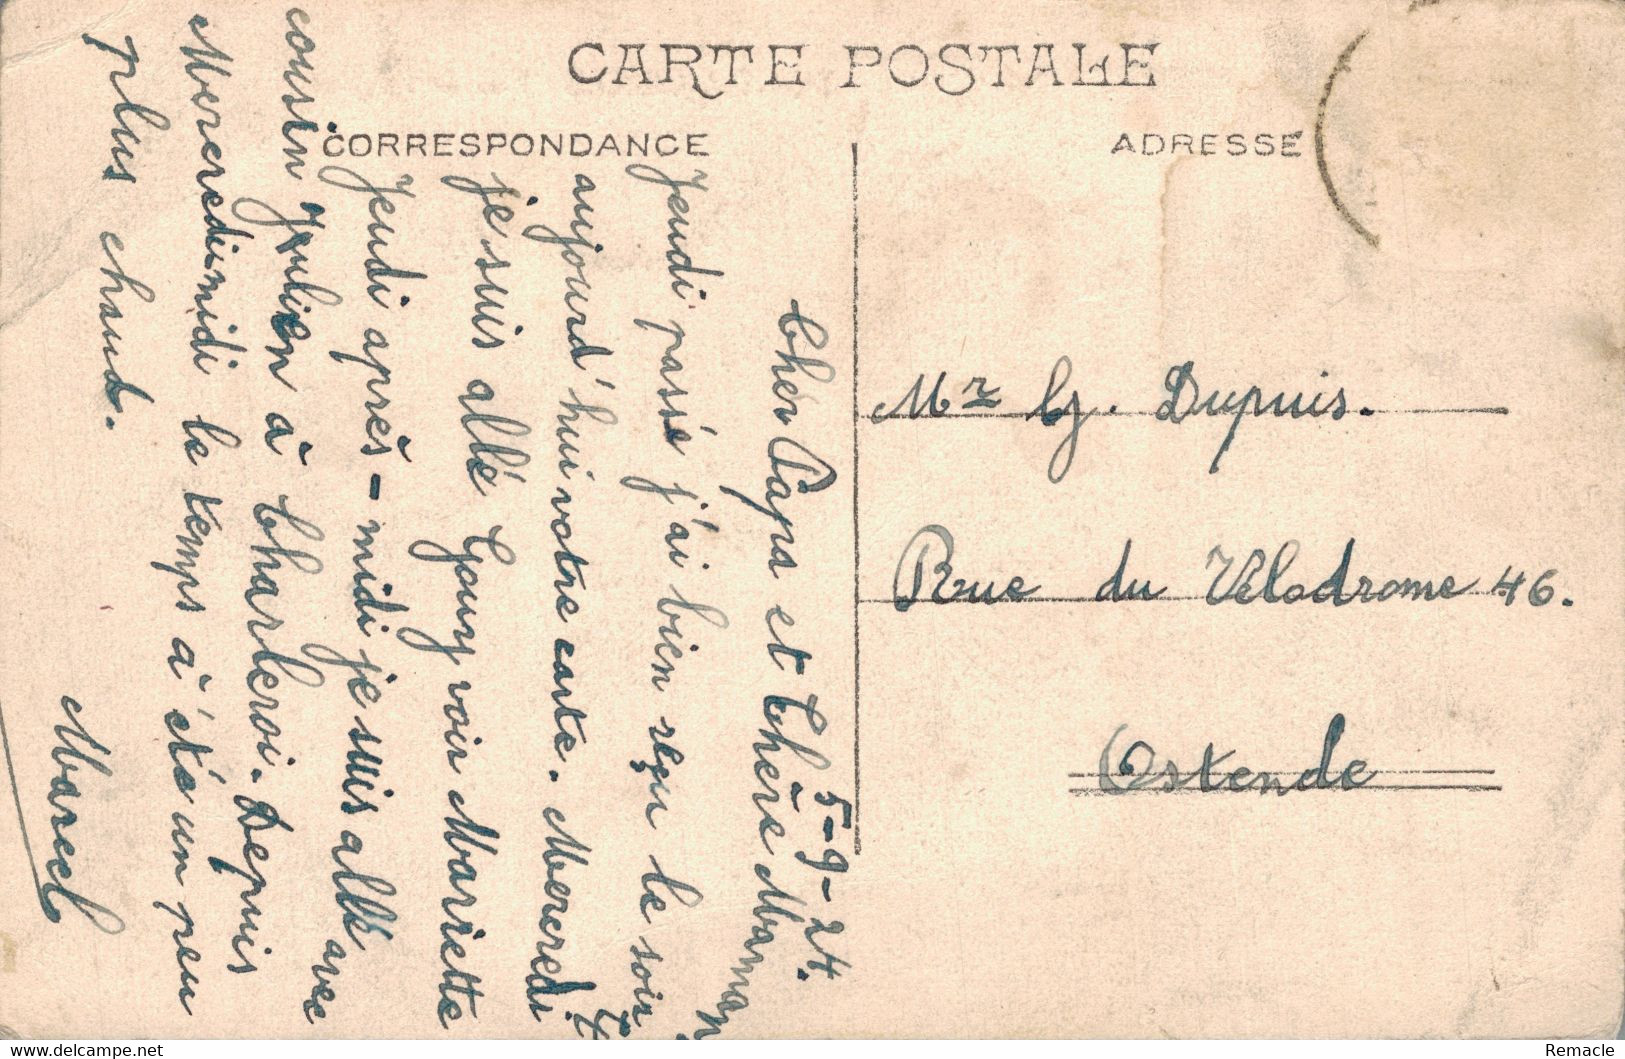 CARTE POSTALE
CORRESPONDANCE
ADRESSE
5-9-24.
Cher Papa et Chère Maman
Jeudi passé j'ai bien reçu le soir et
aujourd'hui votre carte. Mereredi
je suis allé Gouy voir Mariette
Jeudi après-midi je suis allé avec
cousin Julien à Charleroi. Depuis
Mereredi midi le temps à été un peu
plus chaud.
Marcel
Mr G. Dupuis.
Rue du Vélodrome 46.
Ostende
www.delcampe.net
Remacle